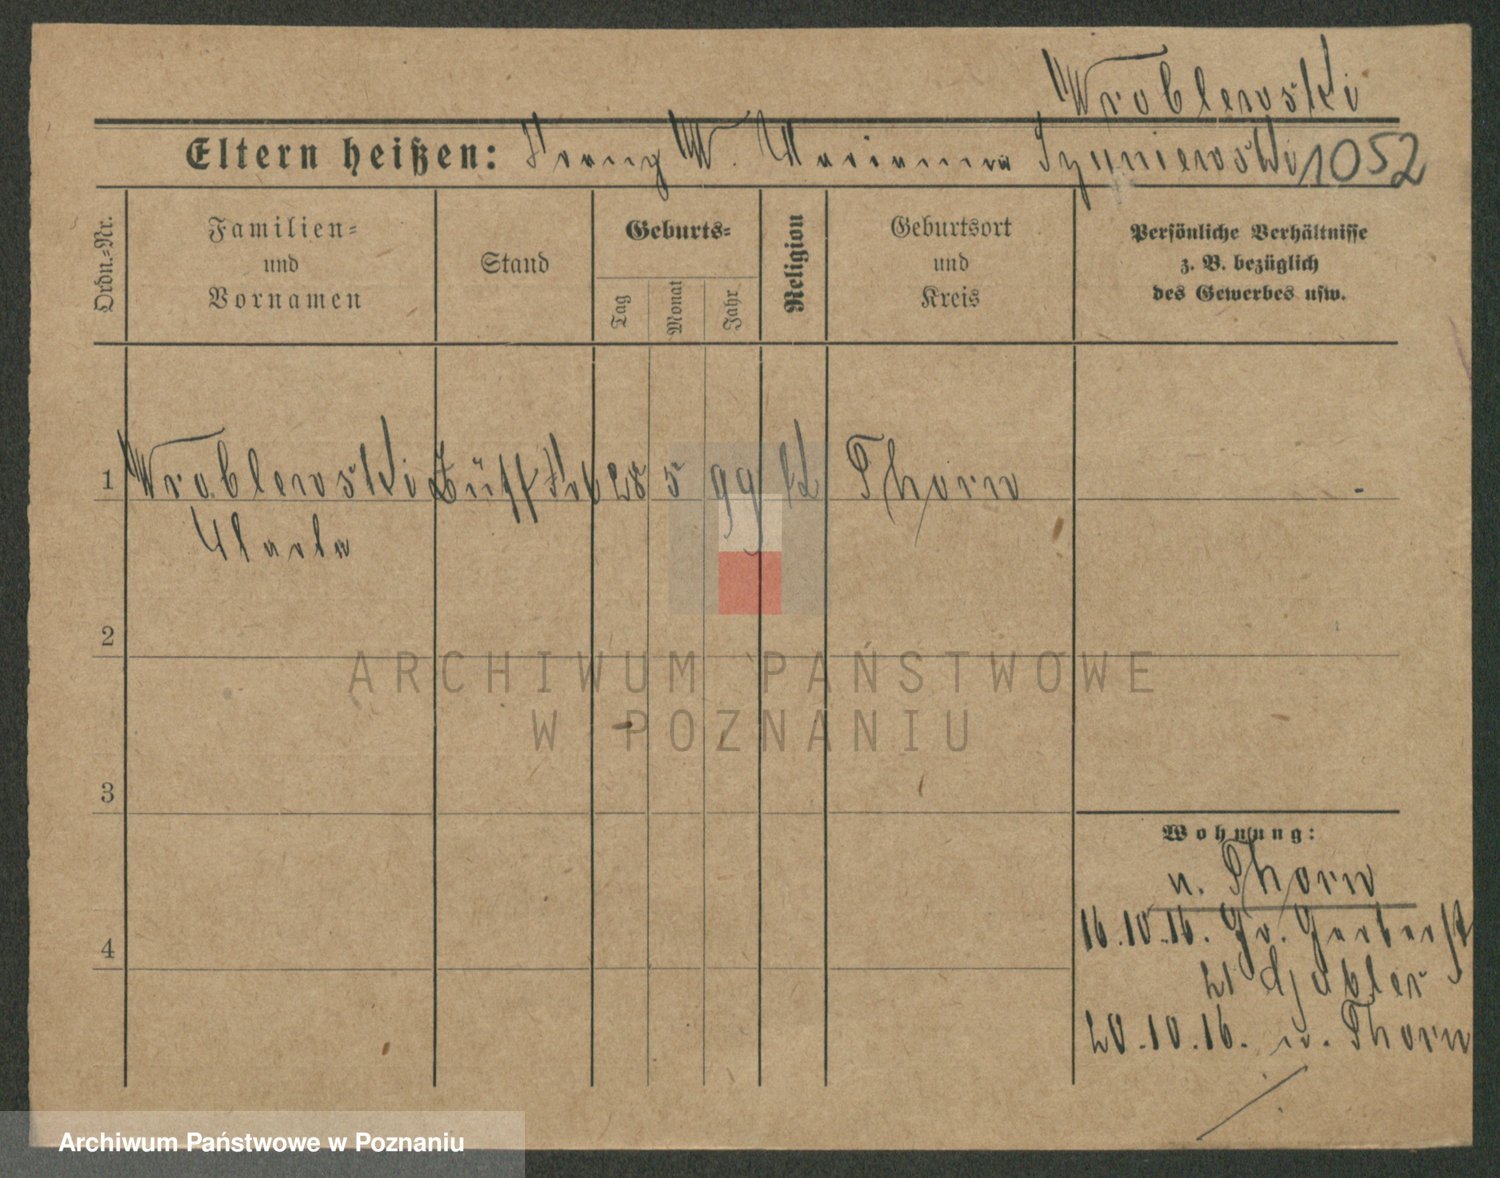 Wroblewski
Eltern heißen: Franz W. Marianna Szymiewski 1052
Ordn.-Nr.
Familien-
und
Vornamen
Stand
Geburts-
Tag
Monat
Jahr
Religion
Geburtsort
und
Kreis
Persönliche Verhältnisse
z. B. bezüglich
des Gewerbes usw.
1 Wroblewski 28 5 99 k Thorn -
2
3
4
Wohnung:
n. Thorn
16.10.16. Gr. Gerberst
21
20.10.16. n. Thorn
ARCHIWUM PAŃSTWOWE
W POZNANIU
Archiwum Państwowe w Poznaniu